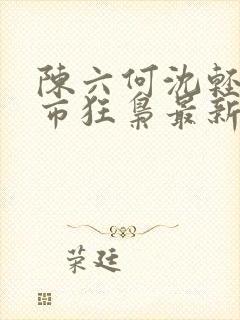 陳六何沈輕
市狂梟最新
荣廷